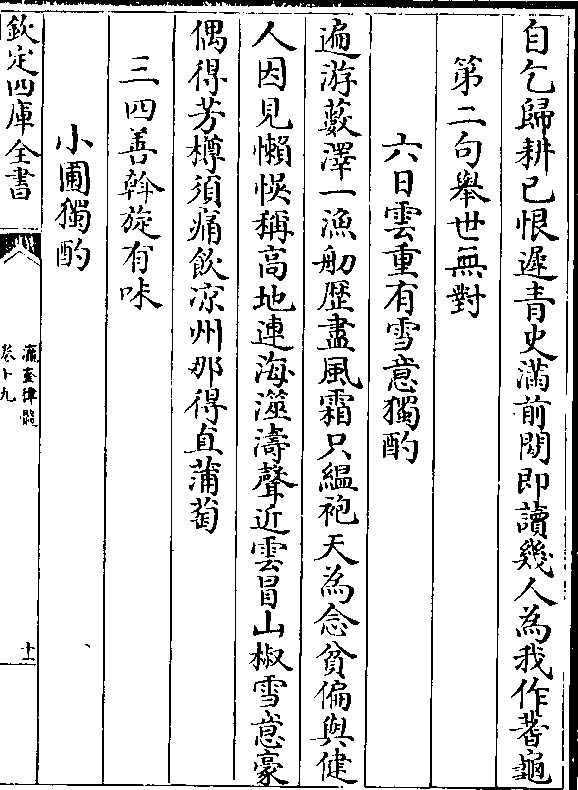 自乞歸耕已恨遲青史滿前閒即讀幾人為我作蓍龜
第二句舉世無對
六日雲重有雪意獨酌
遍游藪澤一漁舠歴盡風霜只緼袍天為念貧偏與健
人因見懶悮稱高地連海澨濤聲近雲冒山椒雪意豪
偶得芳樽須痛飲凉州那得直蒲萄
三四善斡旋有味
小圃獨酌
欽定四庫全書
瀛奎律髓
卷十九
十一